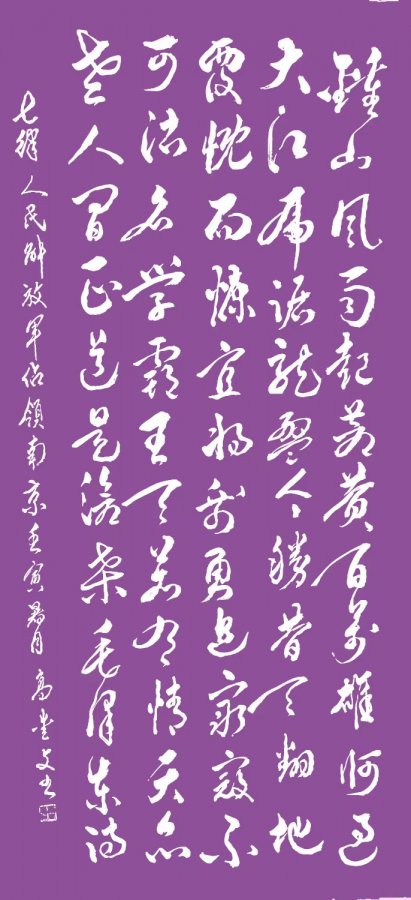 鍾山风雨起苍黄百万雄师过
大江虎踞龙盘今勝昔天翻地
覆慨而慷宜将剩勇追穷寇不
可沽名学霸王天若有情天亦
老人间正道是沧桑毛泽东诗
七律人民解放军佔领南京壬寅暑月高文书